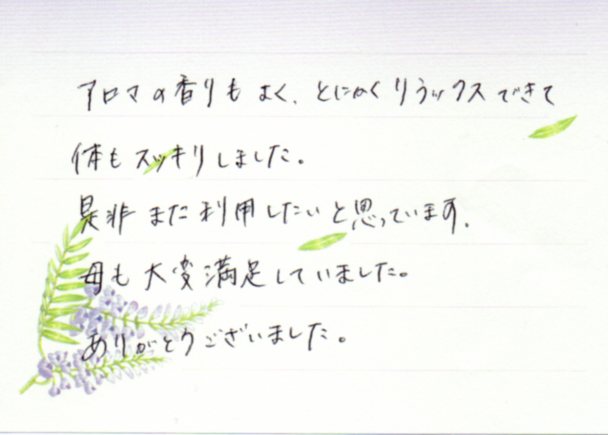 アロマの香りもよく、とにかくリラックスできて
体もスッキリしました。
是非また利用したいと思っています。
母も大変満足していました。
ありがとうございました。